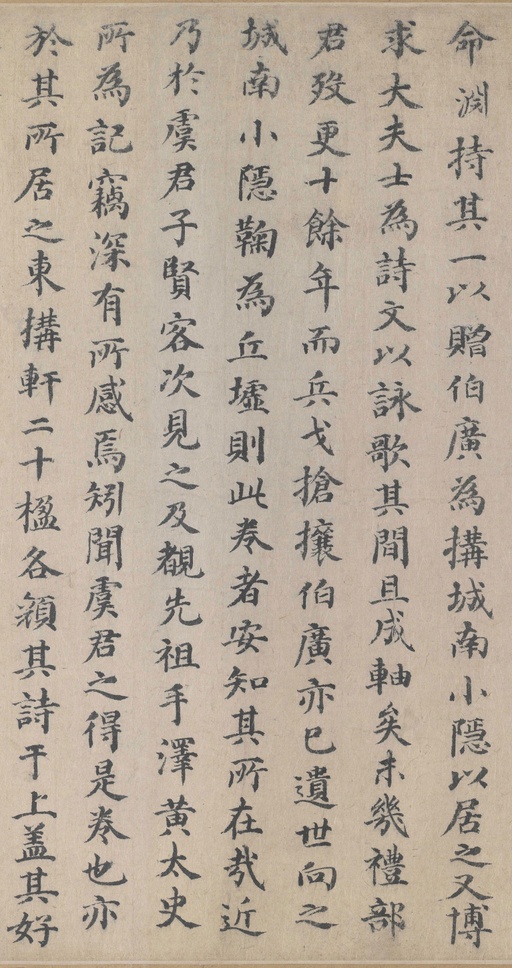 命淵持其一以贈伯廣為搆城南小隱以居之又博
求大夫士為詩文以詠歌其間且成軸矣未幾禮部
君歿更十餘年而兵戈搶攘伯廣亦已遺世向之
城南小隱鞠為丘墟則此卷者安知其所在哉近
乃於虞君子賢客次見之及觀先祖手澤黃太史
所為記竊深有所感焉矧聞虞君之得是卷也亦
於其所居之東搆軒二十楹各額其詩于上蓋其好